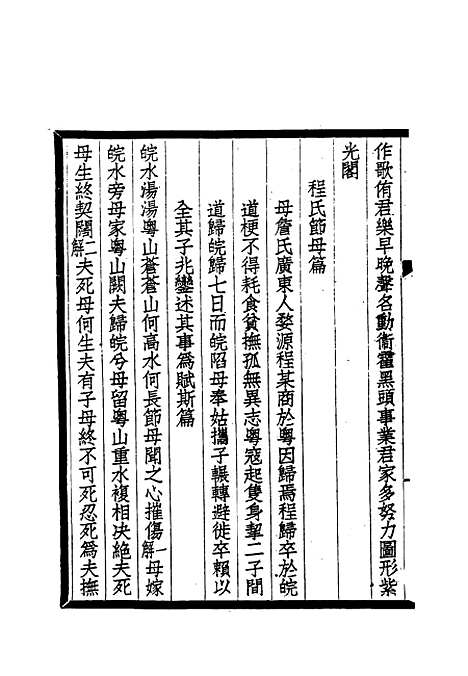 作歌侑君樂早晚聲名動衞霍黑頭事業君家多努力圖形紫
光閣
程氏節母篇
母詹氏廣東人婺源程某商於粵因歸焉程歸卒於皖
道梗不得耗食貧撫孤無異志粵寇起隻身挈二子間
道歸皖歸七日而皖陷母奉姑攜子輾轉避徙卒賴以
全其子兆鑾述其事爲賦斯篇
皖水湯湯粵山蒼蒼山何高水何長節母聞之心摧傷一解母嫁
皖水旁母家粵山闕夫歸皖兮母留粵山重水複相决絶夫死
母生終契闊二解夫死母何生夫有子母終不可死忍死爲夫撫